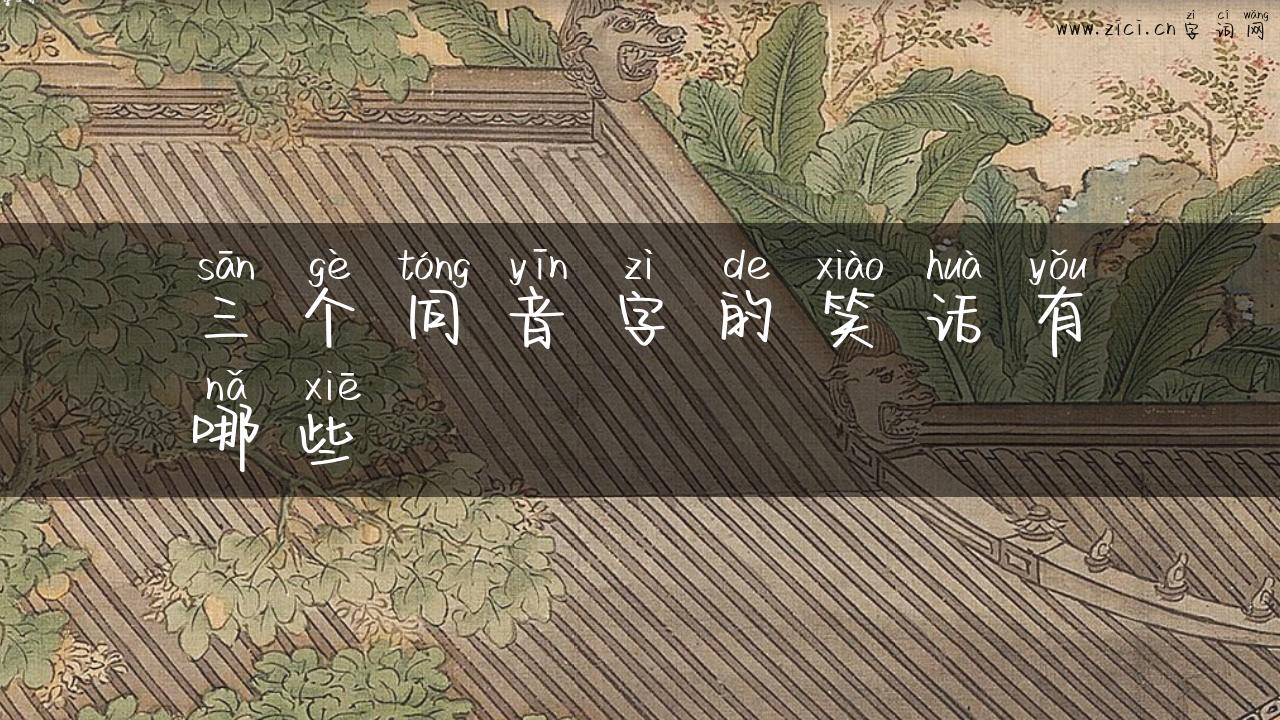 zì cí wǎng
www.zici.cn 字词网
sān gè tóng yīn zì de xiào huà yǒu
三个同音字的笑话有
nǎ xiē
哪些